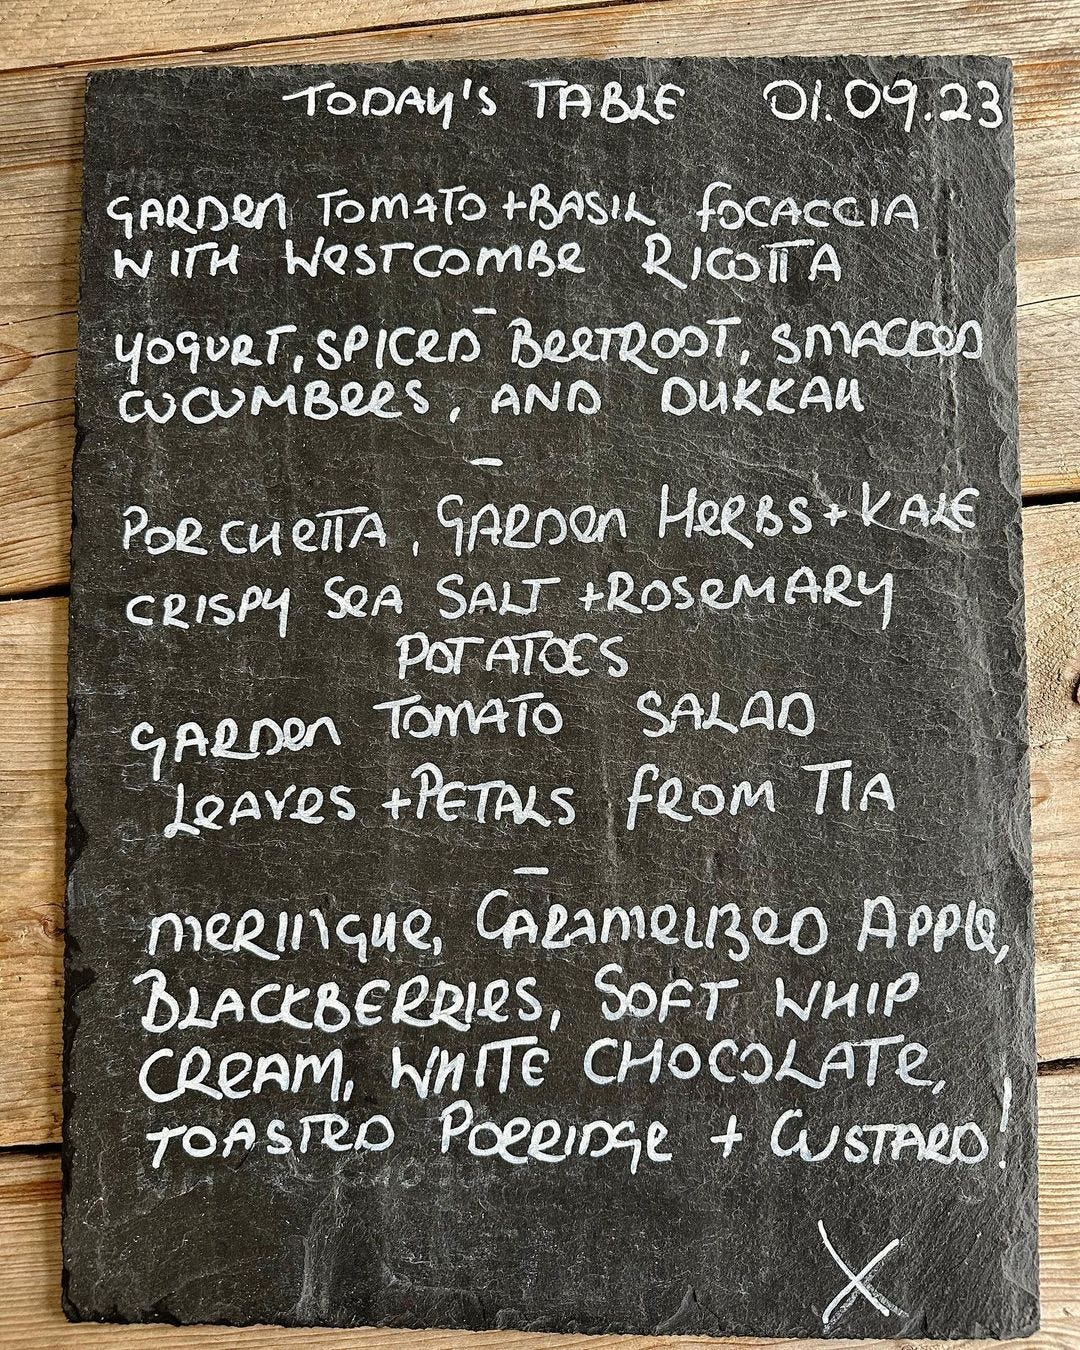 TODAY'S TABLE 01.09.23
GARDEN TOMATO + BASIL FOCACCIA
WITH WESTCOMBE RICOTTA
-
YOGURT, SPICED BEETROOT, SMACCOD
CUCUMBERS, AND DUKKAH
-
PORCHETTA, GARDEN HERBS + KALE
CRISPY SEA SALT + ROSEMARY
POTATOES
GARDEN TOMATO SALAD
LEAVES + PETALS FROM TIA
-
MERINGUE, CARAMELIZED APPLE,
BLACKBERRIES, SOFT WHIP
CREAM, WHITE CHOCOLATE,
TOASTED PORRIDGE + CUSTARD!
X